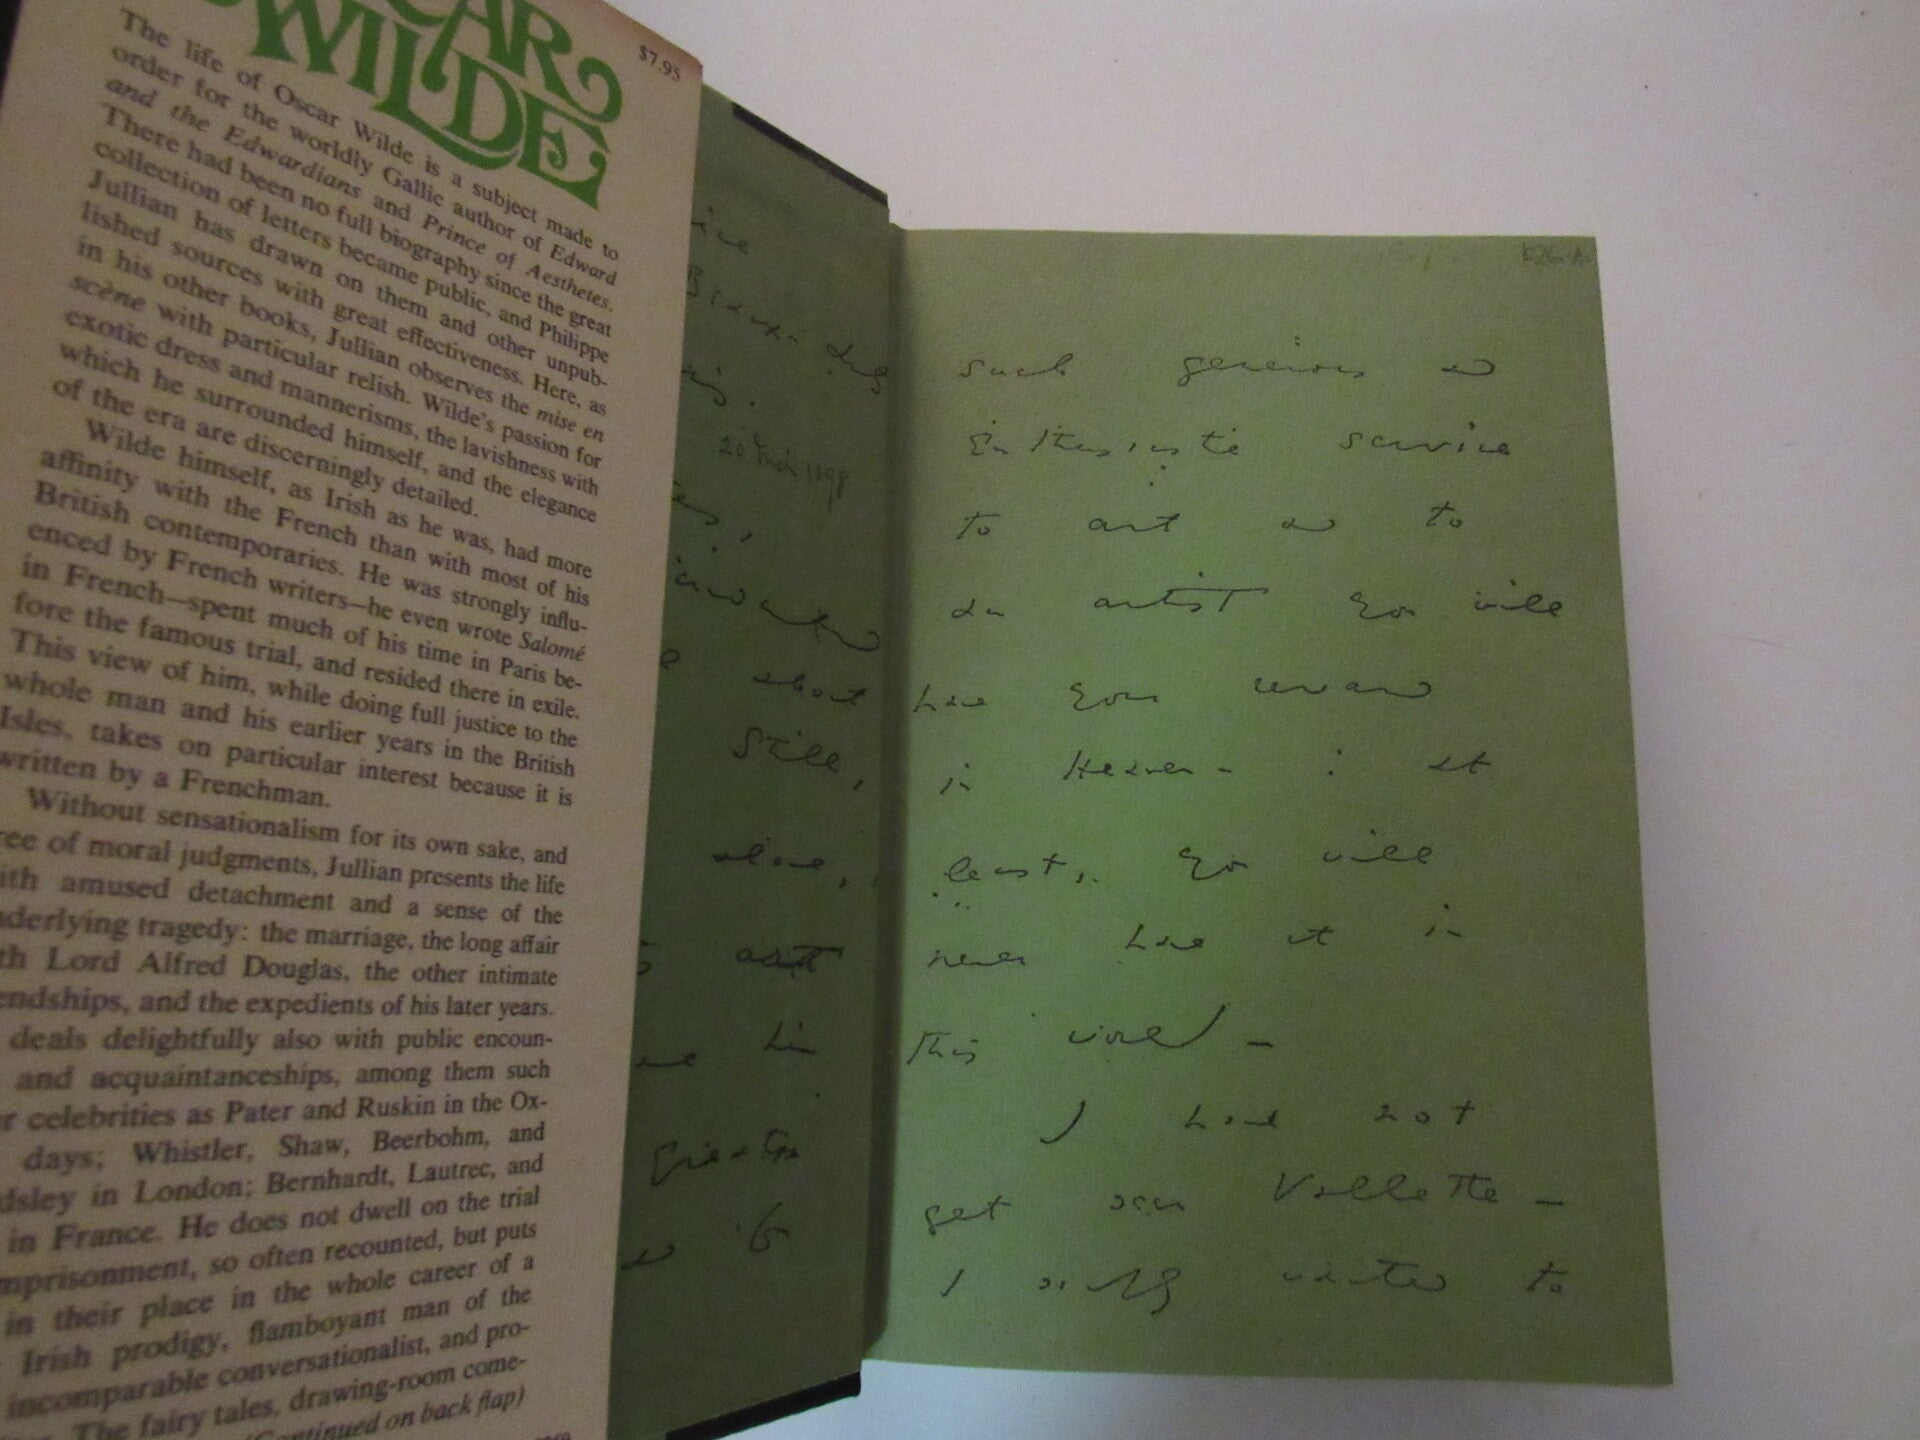 WILDE
$7.95
The life of Oscar Wilde is a subject made to
order for the worldly Gallic author of Edward
and the Edwardians and Prince of Aesthetes.
There had been no full biography since the great
collection of letters became public, and Philippe
Jullian has drawn on them and other unpub-
lished sources with great effectiveness. Here, as
in his other books, Jullian observes the mise en
scène with particular relish. Wilde's passion for
exotic dress and mannerisms, the lavishness with
which he surrounded himself, and the elegance
of the era are discerningly detailed.
Wilde himself, as Irish as he was, had more
affinity with the French than with most of his
British contemporaries. He was strongly influ-
enced by French writers—he even wrote Salomé
in French—spent much of his time in Paris be-
fore the famous trial, and resided there in exile.
This view of him, while doing full justice to the
whole man and his earlier years in the British
Isles, takes on particular interest because it is
written by a Frenchman.
Without sensationalism for its own sake, and
of moral judgments, Jullian presents the life
amused detachment and a sense of the
tragedy: the marriage, the long affair
Lord Alfred Douglas, the other intimate
and the expedients of his later years.
deals delightfully also with public encoun-
and acquaintanceships, among them such
celebrities as Pater and Ruskin in the Ox-
days; Whistler, Shaw, Beerbohm, and
in London; Bernhardt, Lautrec, and
in France. He does not dwell on the trial
so often recounted, but puts
in their place in the whole career of a
Irish prodigy, flamboyant man of the
incomparable conversationalist, and pro-
The fairy tales, drawing-room come-
(Continued on back flap)
about
Still,
alone,
art
such generous and
enthusiastic service
to art and to
an artist you will
have your reward
in Heaven - : at
least, you will
never have it in
this world -
I have not
get seen Vallette -
I simply wanted to